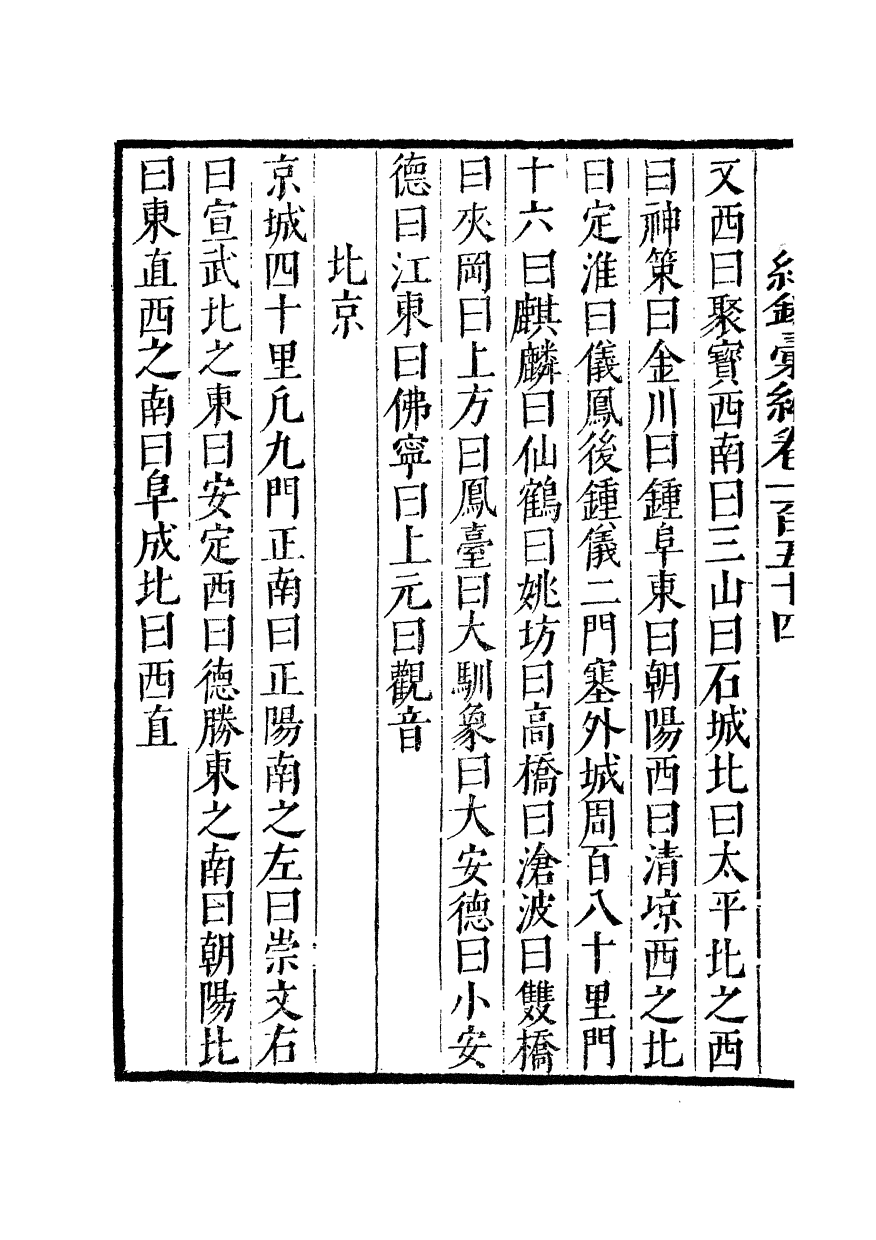 紀錄彙編卷一百五十四
又西曰聚寶西南曰三山曰石城北曰太平北之西
曰神策曰金川曰鍾阜東曰朝陽西曰清凉西之北
曰定淮曰儀鳳後鍾儀二門塞外城周百八十里門
十六曰麒麟曰仙鶴曰姚坊曰高橋曰滄波曰雙橋
曰夾岡曰上方曰鳳臺曰大馴象曰大安德曰小安
德曰江東曰佛寧曰上元曰觀音
北京
京城四十里凢九門正南曰正陽南之左曰崇文右
曰宣武北之東曰安定西曰德勝東之南曰朝陽北
曰東直西之南曰阜成北曰西直